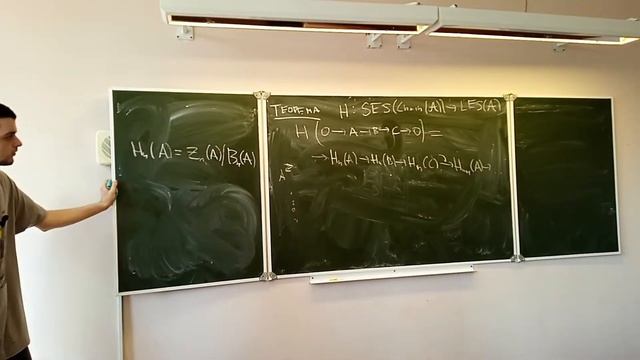 Hₙ(A) = Zₙ(A)/Bₙ(A)
ТЕОРЕМА H : SES(Chain(A)) → LES(A)
H(0→A→B→C→0) =
→ Hₙ(A) → Hₙ(B) → Hₙ(C) →∂ Hₙ₋₁(A) →
A^ℤ